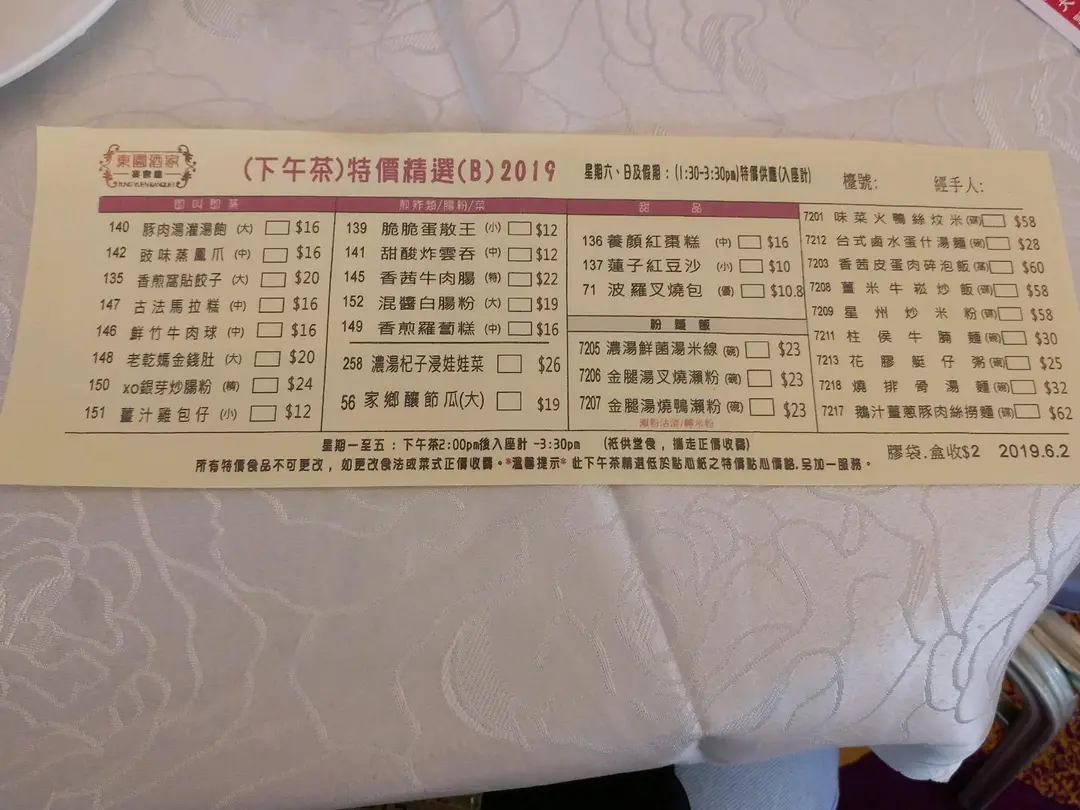 東園酒家
宴會廳
TUNG YUEN BANQUET
(下午茶)特價精選(B)2019
星期六、日及假期：(1:30-3:30pm)特價供應(入座計)
檯號:
經手人:
即叫即蒸
140 豚肉湯灌湯飽 (大) $16
142 豉味蒸鳳爪 (中) $16
135 香煎窩貼餃子 (大) $20
147 古法馬拉糕 (中) $16
146 鮮竹牛肉球 (中) $16
148 老乾媽金錢肚 (大) $20
150 xo銀芽炒腸粉 (特) $24
151 薑汁雞包仔 (小) $12
煎炸類/腸粉/菜
139 脆脆蛋散王 (小) $12
141 甜酸炸雲吞 (中) $12
145 香茜牛肉腸 (特) $22
152 混醬白腸粉 (大) $19
149 香煎羅蔔糕 (中) $16
258 濃湯杞子浸娃娃菜 $26
56 家鄉釀節瓜(大) $19
甜品
136 養顏紅棗糕 (中) $16
137 蓮子紅豆沙 (小) $10
71 波羅叉燒包 (優) $10.8
粉麵飯
7205 濃湯鮮菌湯米線 (碗) $23
7206 金腿湯叉燒瀨粉 (碗) $23
7207 金腿湯燒鴨瀨粉 (碗) $23
7201 味菜火鴨絲炆米(碟) $58
7212 台式鹵水蛋什湯麵(碗) $28
7203 香茜皮蛋肉碎泡飯(窩) $60
7208 薑米牛崧炒飯(碟) $58
7209 星州炒米粉(碟) $58
7211 柱侯牛腩麵(碗) $30
7213 花膠艇仔粥(碗) $25
7218 燒排骨湯麵(碗) $32
7217 鵝汁薑蔥豚肉絲撈麵(碟) $62
星期一至五：下午茶2:00pm後入座計 -3:30pm (祇供堂食，攜走正價收費)
所有特價食品不可更改，如更改食法或菜式正價收費。*溫馨提示* 此下午茶精選低於點心紙之特價點心價格.另加一服務。
膠袋.盒收$2 2019.6.2